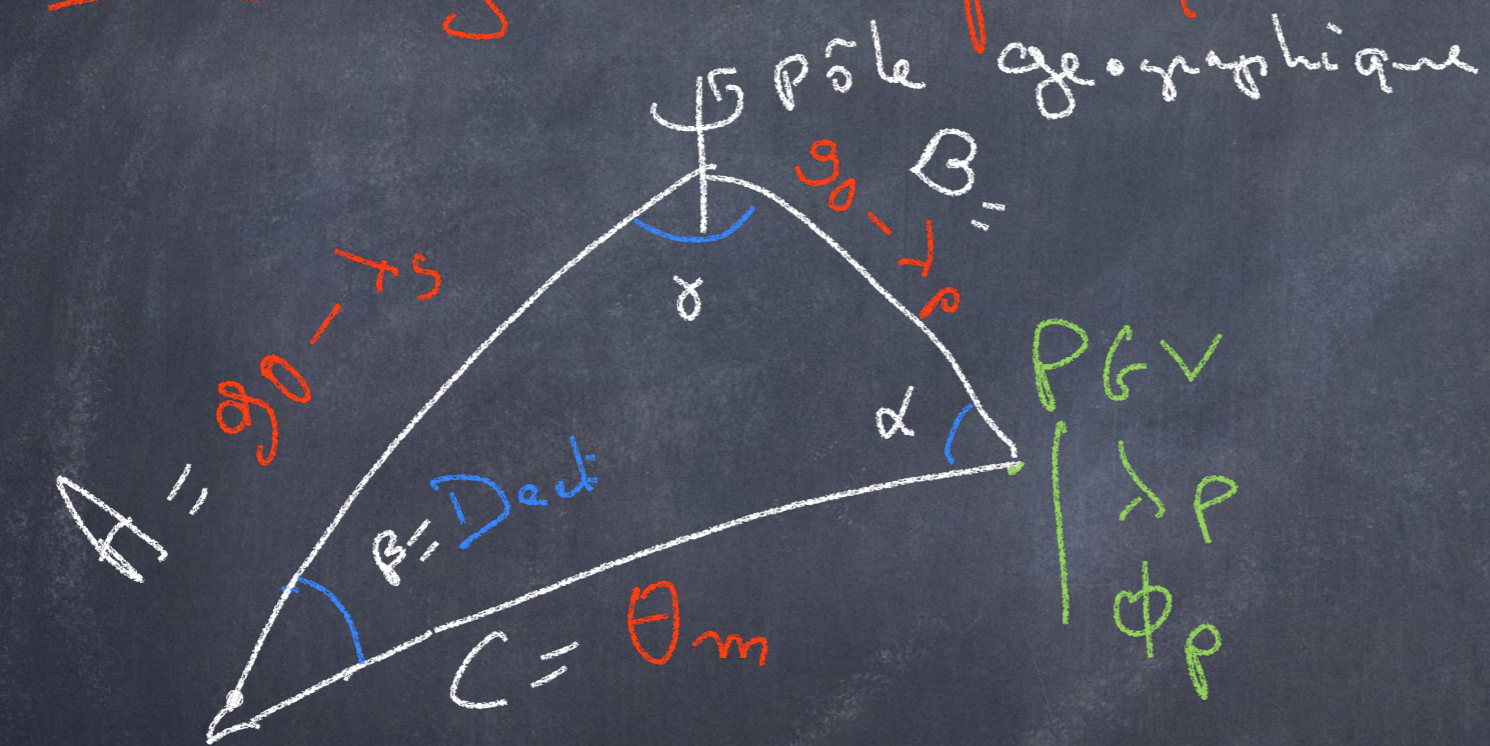 pôle géographique
90 - λp B =
A = 90 - λs
γ
α
PGV
λp
ϕp
β = Decl
C = θm